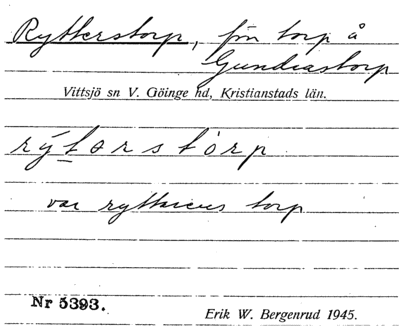 Ryttterstorp, f'n torp å
Gundrastorp
Vittsjö sn V. Göinge hd, Kristianstads län.
rýtərstòrp
var ryttarens torp
Nr 5393.
Erik W. Bergenrud 1945.